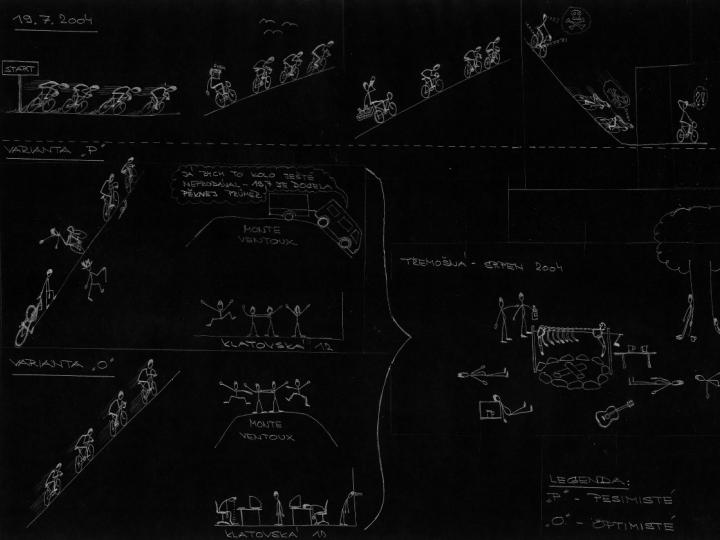 19.7.2004
START
VARIANTA „P"
JÁ BYCH TO KOLO JEŠTĚ
NEPRODÁVAL - 19,7 JE DOCELA
PĚKNEJ PRŮMĚR!
MONTE
VENTOUX
KLATOVSKÁ 12
TŘEMOŠNÁ - SRPEN 2004
VARIANTA „O"
MONTE
VENTOUX
KLATOVSKÁ 10
LEGENDA:
„P" - PESIMISTÉ
„O" - OPTIMISTÉ